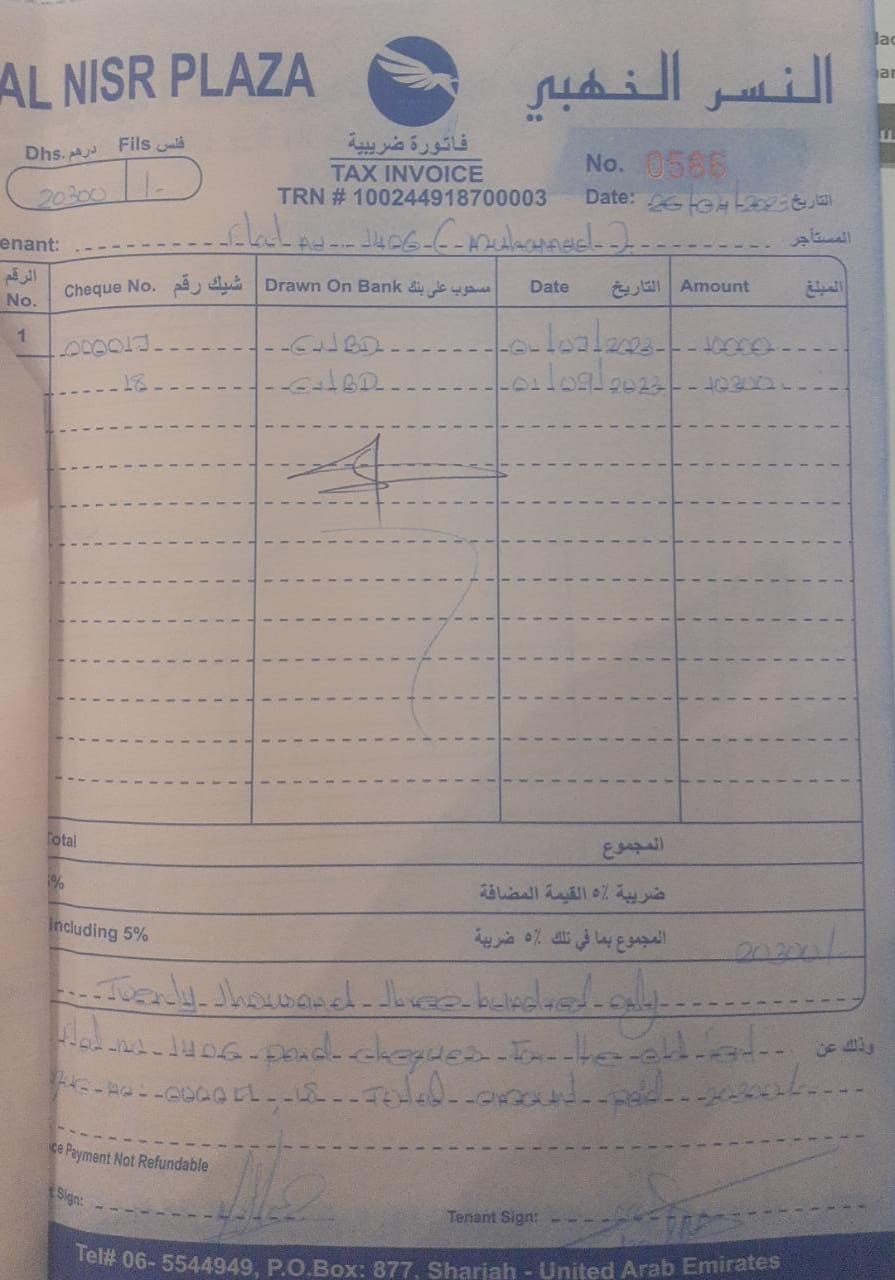 AL NISR PLAZA
النسر الذهبي
Dhs. درهم Fils فلس
20300 /-
فاتورة ضريبية
TAX INVOICE
TRN # 100244918700003
No. 0586
Date: 26/04/2023 التاريخ
enant: Flat no: 1406 (Muhammad) المستأجر
الرقم No. Cheque No. شيك رقم Drawn On Bank مسحوب على بنك Date التاريخ Amount المبلغ
1 000017 ENBD 01/07/2023 10000
18 ENBD 01/09/2023 10300
otal المجموع
% ضريبة ٥٪ القيمة المضافة
including 5% المجموع بما في تلك ٥٪ ضريبة 20300/-
Twenty thousand three hundred only
flat no 1406 paid cheques for the old وذلك عن
no: 000017, 18 Total amount paid 20300/-
ce Payment Not Refundable
Sign:
Tenant Sign:
Tel# 06- 5544949, P.O.Box: 877, Sharjah - United Arab Emirates